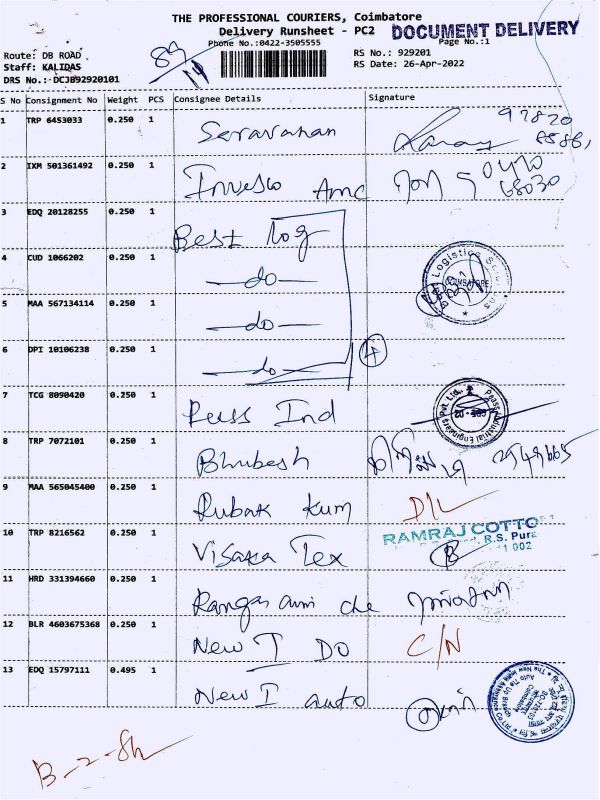 THE PROFESSIONAL COURIERS, Coimbatore
Delivery Runsheet - PC2
DOCUMENT DELIVERY
Phone No.:0422-3505555
Page No.:1
Route: DB ROAD
RS No.: 929201
Staff: KALIDAS
RS Date: 26-Apr-2022
DRS No.: DCJB92920101
S No Consignment No Weight PCS Consignee Details Signature
1 TRP 6453033 0.250 1 Saravanan 97820
2 IXM 501361492 0.250 1 Invesco Amc
3 EDQ 20128255 1 0.250 1 Best log
4 CUD 1066202 0.250 1 —do—
5 MAA 567134114 0.250 1 —do—
6 DPI 10106238 0.250 1 —do— 4
7 TCG 8090420 0.250 1 Puss Ind
8 TRP 7072101 0.250 1 Bhubesh
9 MAA 565045400 0.250 1 Rubak Kum D/L
RAMRAJ COTTO
R.S. Pura
10 TRP 8216562 0.250 1 Visaka Tex
11 HRD 331394660 0.250 1
12 BLR 4603675368 0.250 1 New I DO C/N
13 EDQ 15797111 0.495 1 New I auto